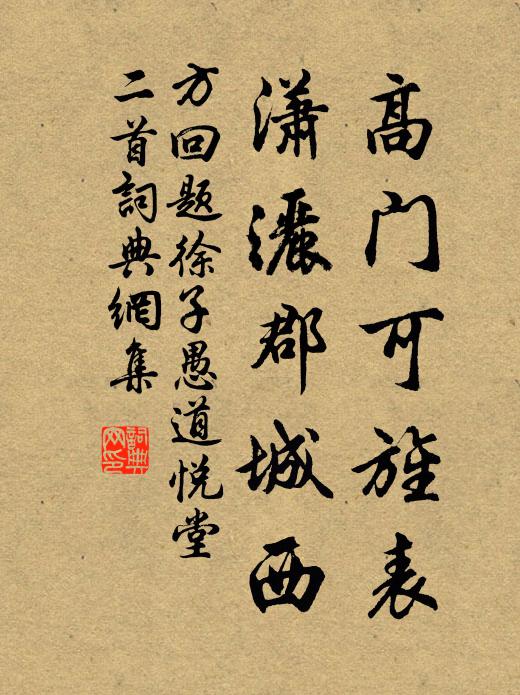 高门可旌表
潇洒郡城西
方回题徐子愚道悦堂
二首詞典網集
詞典
网印